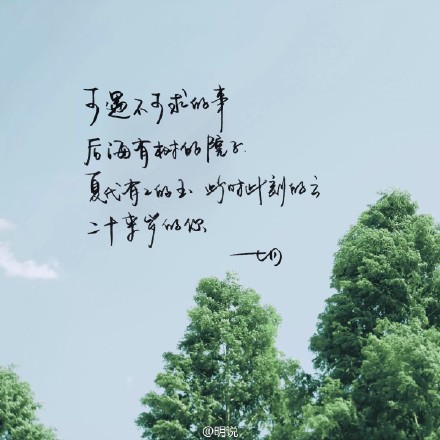 可遇不可求的事
后海有树的院子
夏代有工的玉 此时此刻的云
二十来岁的你
@明说